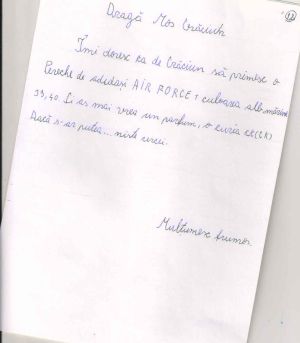 12
Dragă Moș Crăciun
Îmi doresc ca de Crăciun să primesc o
Pereche de adidași AIR FORCE 1 culoarea alb mărime
39,40. Și aș mai vrea un parfum, o curia CK(CK)
Dacă s-ar putea... niste
Mulțumesc frumos.